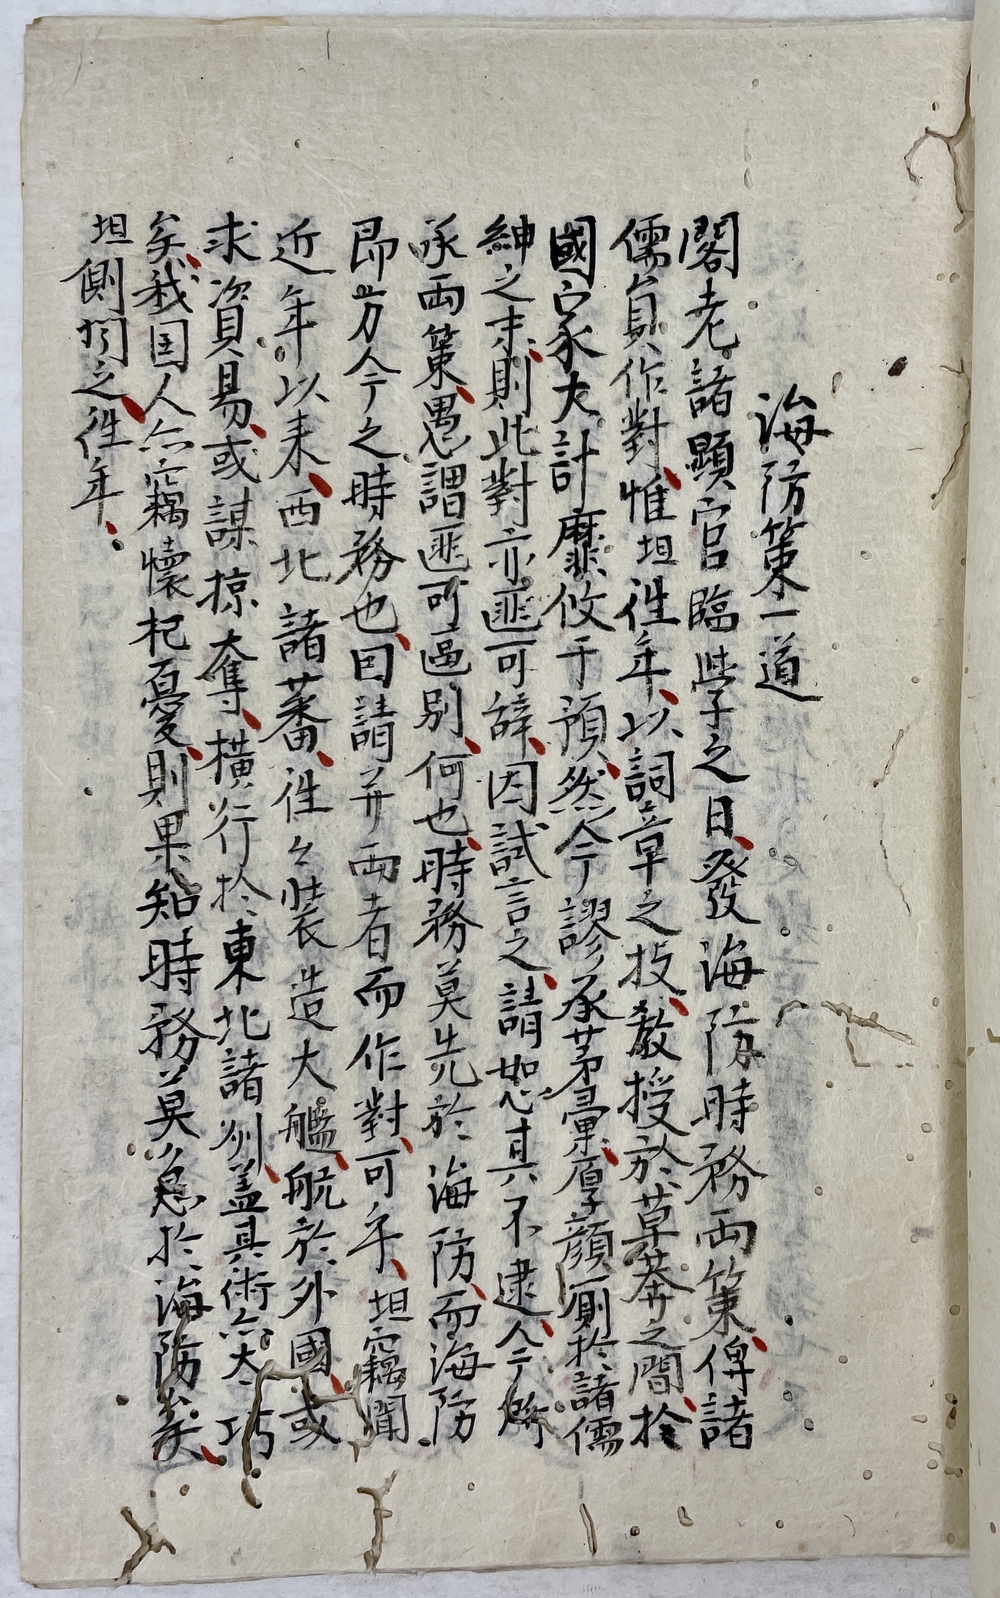 海防策一道
閣老諸顕官臨學之日、發海防時務両策、俾諸
儒員作對、惟坦往年、以詞章之技、教授於草莽之間、於
國家大計靡攸干預、然今謬承茅彙、厚顔厠於諸儒
紳之末、則此對亦匪可辞、因試言之、請恕其不逮、今所
承両策、愚謂匪可區別、何也、時務莫先於海防、而海防
即方今之時務也、因請并両者而作對、可乎、坦竊聞
近年以来、西北諸蕃、往々装造大艦、航於外國、或
求資易、或謀掠奪、横行於東北諸州、盖其術亦太巧
矣、我国人亦竊懐杞憂、則果知時務莫急於海防矣、
坦側聞之、往年、